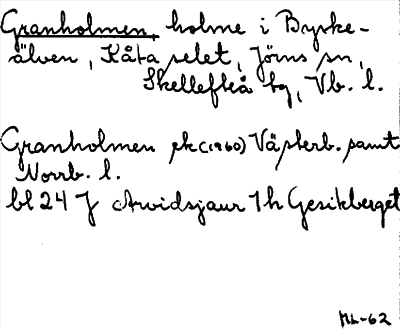 Granholmen, holme i Byske-
älven, Kåta selet, Jörns sn,
Skellefteå tg, Vb. l.
Granholmen ek (1960) Västerb. samt
Norrb. l.
bl 24 J Arvidsjaur 1 h Gesikberget
ML-62